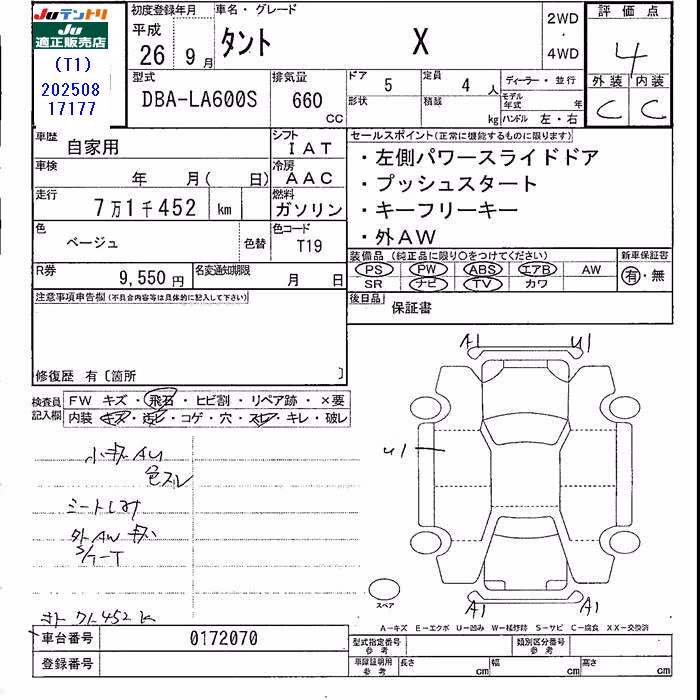 Juテントリ
Ju
適正販売店
(T1)
202508
17177
初度登録年月
平成
26 9月
車名・グレード
タント X
2WD
・
4WD
評価点
4
外装 内装
C C
型式
DBA-LA600S
排気量
660
cc
ドア
5
定員
4 人
形状
積載
kg
ディーラー・並行
モデル年式 年
ハンドル 左・右
車歴
自家用
シフト
IAT
車検
年 月( 日)
冷房
AAC
走行
7万1千452 km
燃料
ガソリン
色
ベージュ
色替
色コード
T19
R券
9,550 円
名変通知期限
月 日
セールスポイント(正常に機能するものに限ります)
・左側パワースライドドア
・プッシュスタート
・キーフリーキー
・外AW
装備品 (純正品に限り○をつけてください)
PS PW ABS エアB AW
SR ナビ TV カワ
新車保証書
有・無
後日品
保証書
注意事項申告欄(不具合内容等は具体的に記入して下さい)
修復歴 有〔箇所 〕
検査員記入欄
FW キズ・飛石・ヒビ割・リペア跡・×要
内装・キズ・汚ヒ・コゲ・穴・スレ・キレ・破レ
小キズAU
色スレ
シートしみ
外AW キズ
S/T-T
71452 K
A1 U1
U1
A1 A1
スペア
A-キズ E-エクボ U-凹み W-補修跡 S-サビ C-腐食 XX-交換済
車台番号
0172070
登録番号
型式指定番号
参考
類別区分番号
参考
車庫証明用
参考
長さ cm
幅 cm
高さ cm